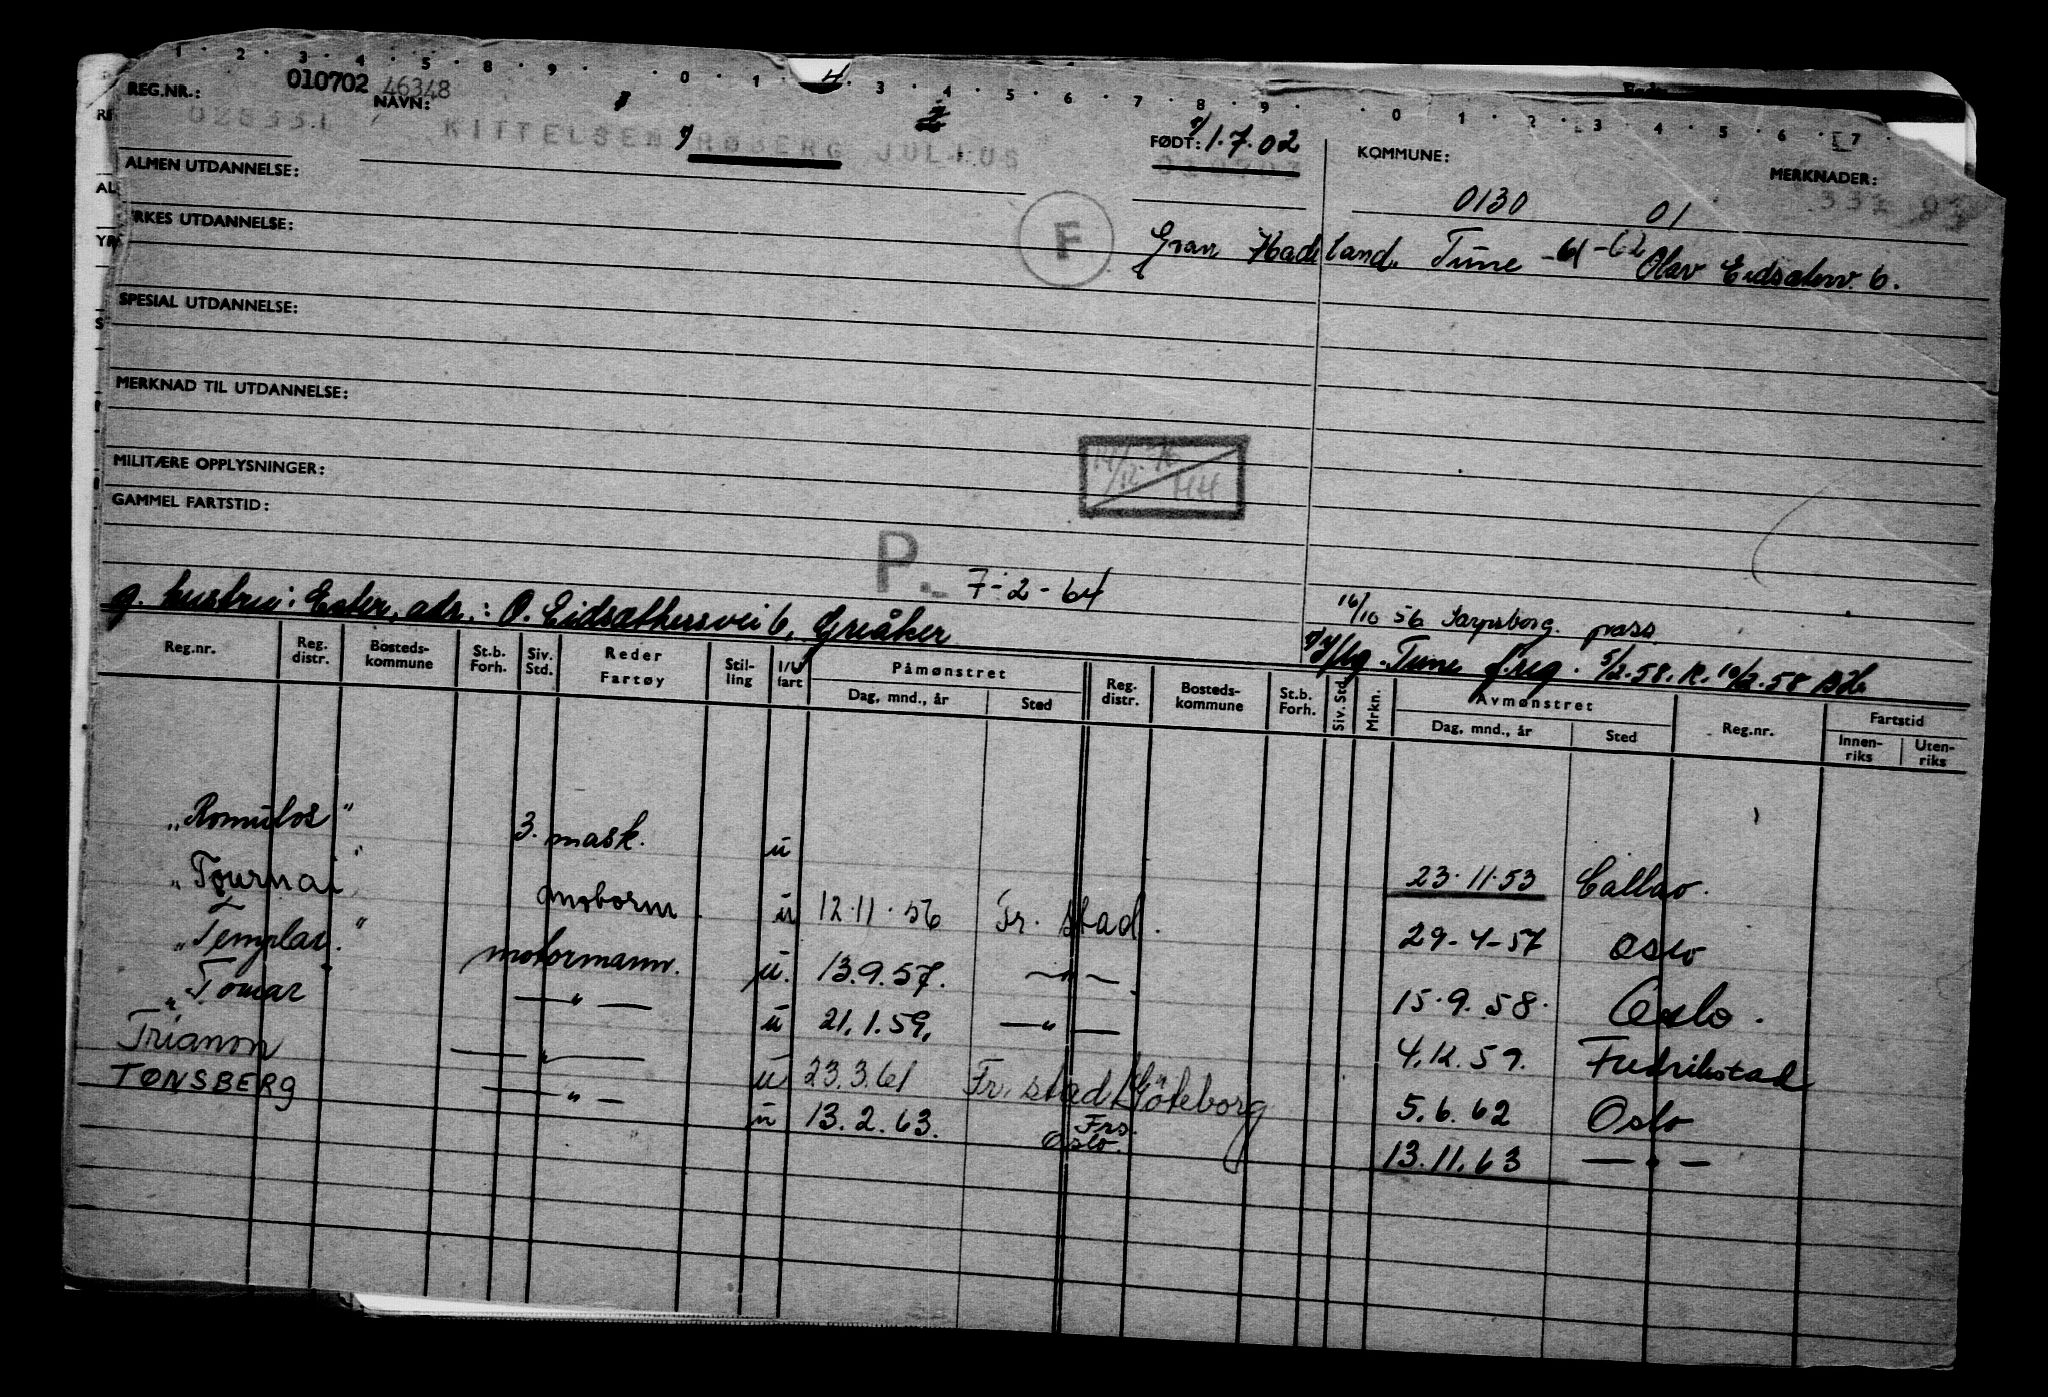 1 2 3 4 5 8 9 0 1 4 3 4 5 6 7 8 9 0 1 2 3 4 5 6 7
REG.NR.: 010702 46348 NAVN:
KITTELSEN RØBERG JULIUS
FØDT: 1.7.02 KOMMUNE: MERKNADER:
ALMEN UTDANNELSE:
0130 01
YRKES UTDANNELSE:
F Gran Hadeland. Tune -61-62 Olav Eidsathsv. 6.
SPESIAL UTDANNELSE:
MERKNAD TIL UTDANNELSE:
MILITÆRE OPPLYSNINGER:
GAMMEL FARTSTID:
P. 7-2-64
g. hustru: Ester, adr.: O. Eidsathersvei 6, Greåker
16/10 56 Sarpsborg. pass
Tune f.reg. 5/2.58. R. 10/2.58
Reg.nr. Reg. distr. Bosteds-kommune St.b. Forh. Siv. Std. Reder Fartøy Stil-ling I/U fart Påmønstret Dag, mnd., år Sted Reg. distr. Bosteds-kommune St.b. Forh. Siv. Std. Mrkn. Avmønstret Dag, mnd., år Sted Reg.nr. Fartstid Innen-riks Uten-riks
"Romulos" 3. mask. u 23.11.53 Callao.
"Tournai" motorm u 12.11.56 Fr. stad. 29-4-57 Oslo
"Templar." motormann. u. 13.9.57. —"— 15.9.58. Oslo.
"Tomar —"— u 21.1.59. —"— 4.12.59. Fredrikstad
Trianon —"— u 23.3.61 Fr. stad/Göteborg 5.6.62 Oslo
TØNSBERG —"— u 13.2.63. Frs. Oslo. 13.11.63 —"—